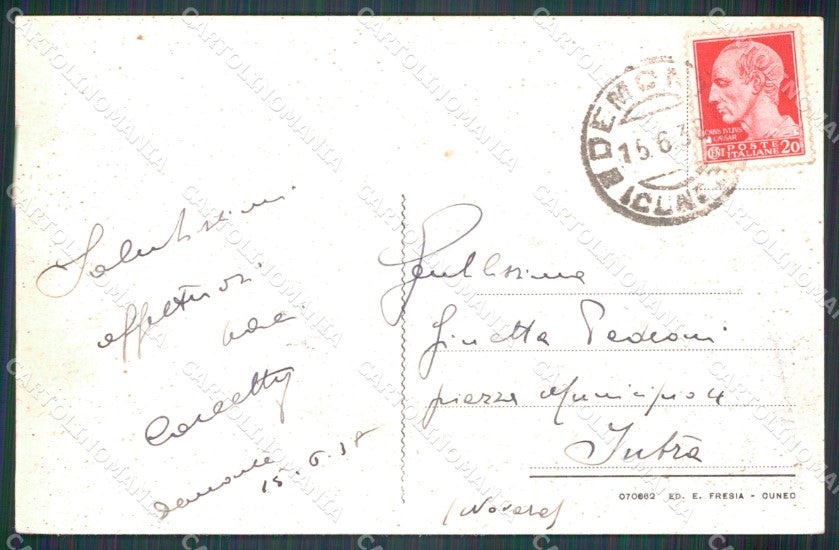 Salutissimi
affettuosi
baci
Demonte 15.6.38
Gentilissima
Ginetta Pedroni
piazza Municipio 4
Intra
(Novara)
DEMONTE
15.6.38
(CUNEO)
CAIUS IVLIVS
CAESAR
POSTE
CENT ITALIANE 20
070662 ED. E. FRESIA - CUNEO
CARTOLINOMANIA